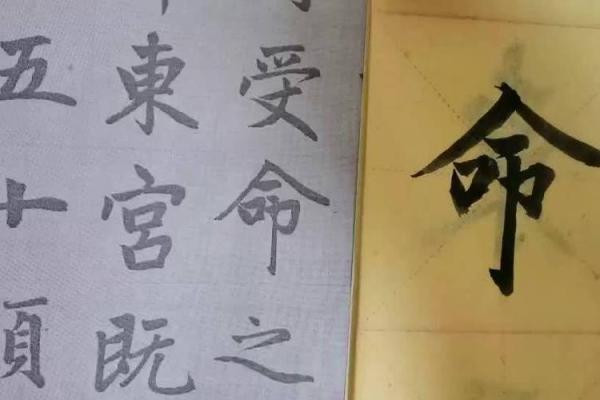 受命之
東宮既
五十頃
命